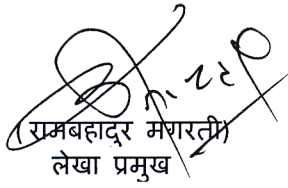 (रामबहादुर मगराती)
लेखा प्रमुख